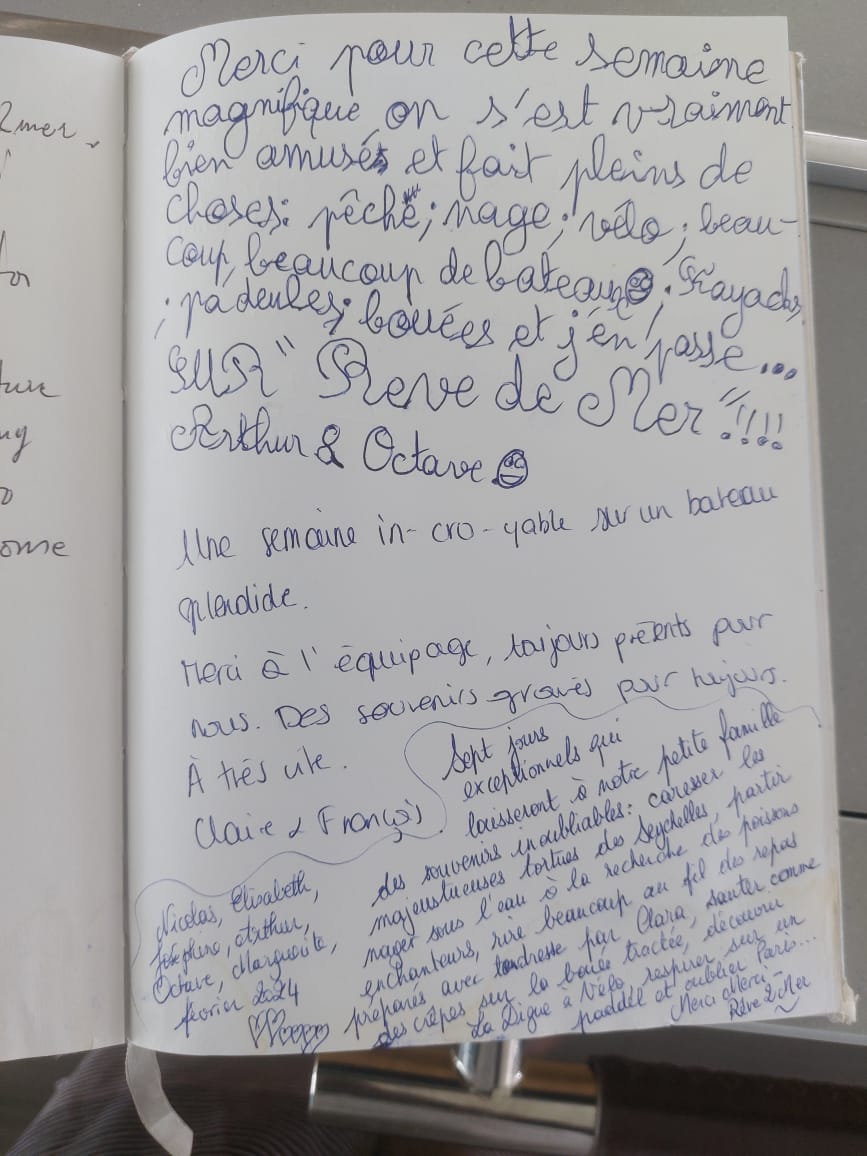 2mer.
for
ture
ng
o
ome
Merci pour cette semaine
magnifique on s'est vraiment
bien amusés et fait pleins de
choses: pêche; nage; vélo; beau-
coup, beaucoup de bateaux; Kayacks
; padeules; bouées et j'en passe...
SUR "Reve de Mer"!!!!
Arthur & Octave
Une semaine in-cro-yable sur un bateau
splendide.
Merci à l'équipage, toujours présents pour
nous. Des souvenirs gravés pour toujours.
À très vite.
Claire & François
Sept jours
exceptionnels qui
laisseront à notre petite famille
des souvenirs inoubliables: caresser les
majestueuses tortues des Seychelles, partir
nager sous l'eau à la recherche des poissons
enchanteurs, rire beaucoup au fil des repas
préparés avec tendresse par Clara, sauter comme
des crêpes sur la bouée tractée, découvrir
La Digue à Vélo, respirer sur un
paddel et oublier Paris...
Merci Merci-
Rêve 2 Mer
Nicolas, Elisabeth,
Joséphine, Arthur,
Octave, Marguerite,
février 2024